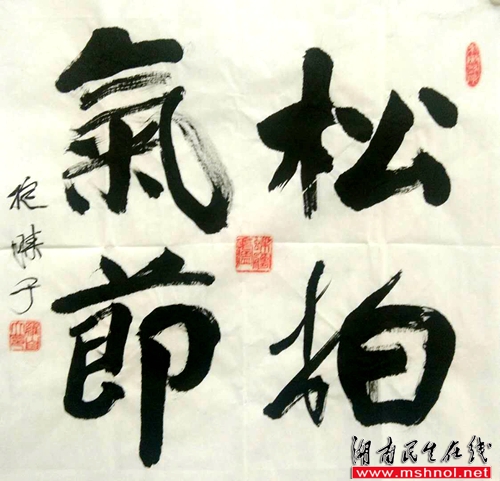 松拍
氣節
湖南民生在线
www.mshnol.net